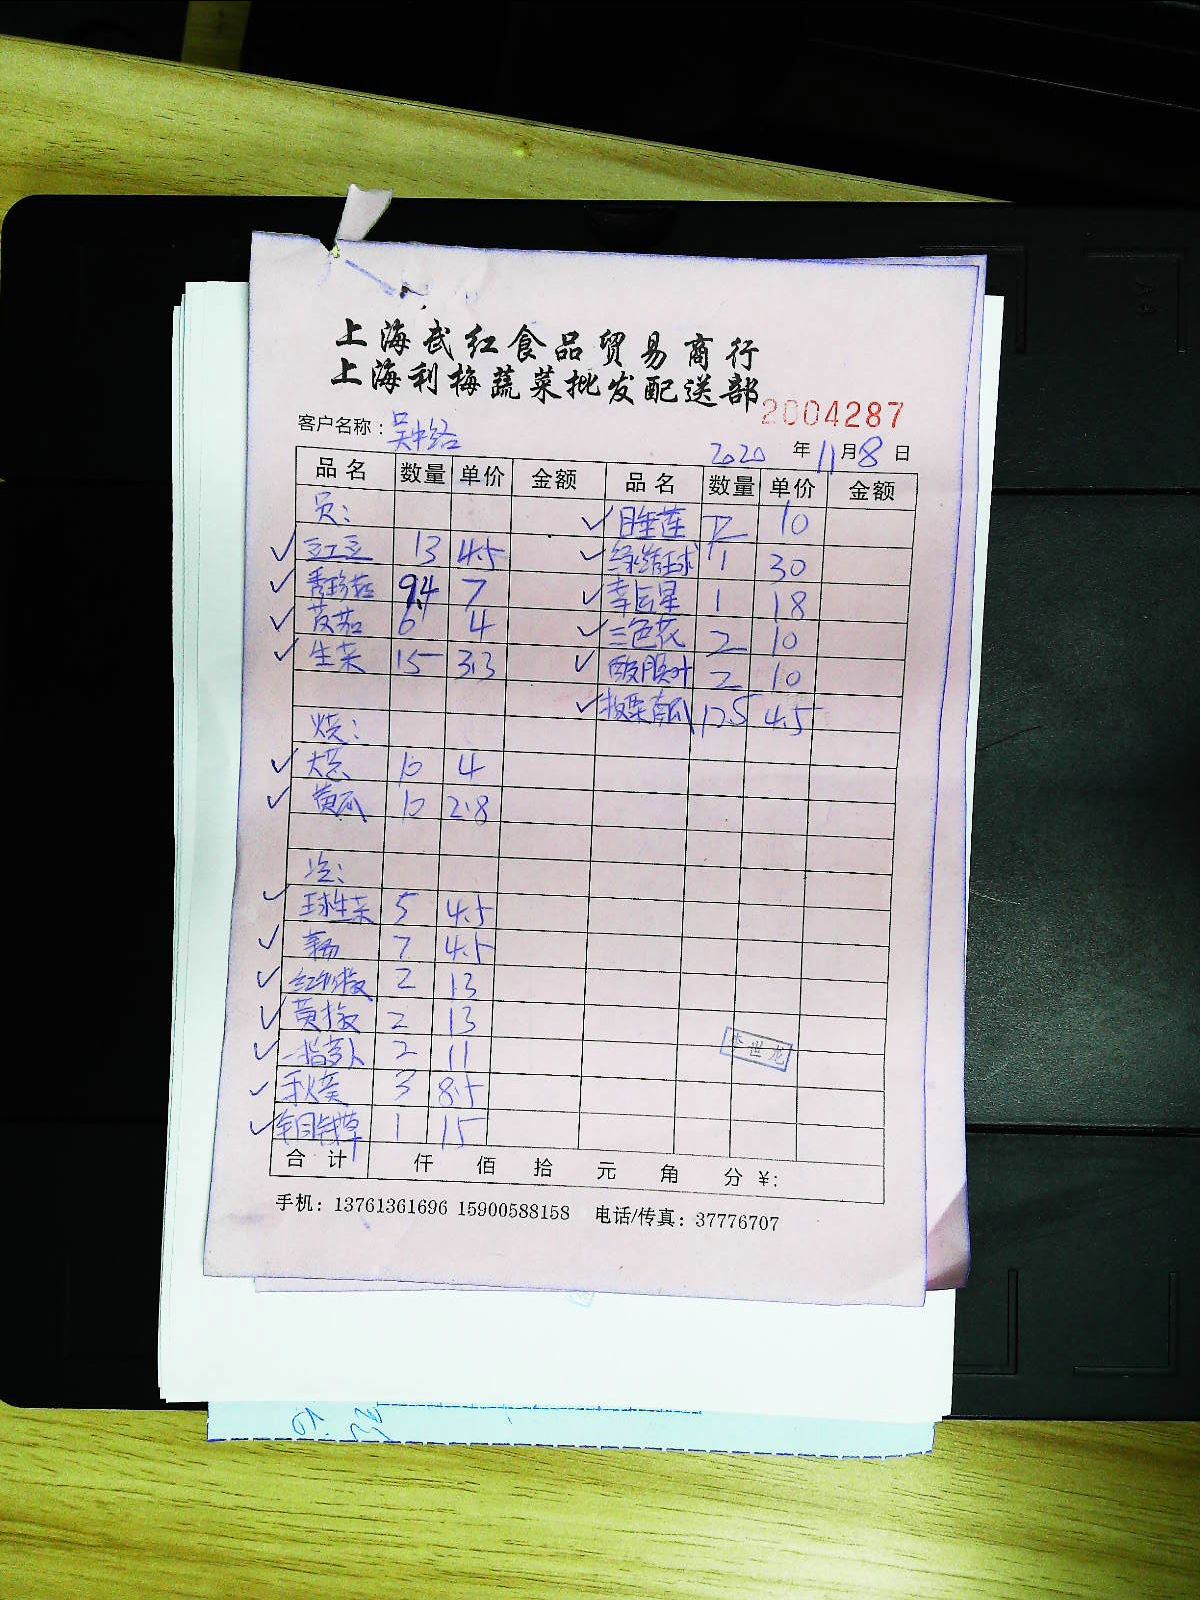 上海武红食品贸易商行
上海利梅蔬菜批发配送部
2004287
客户名称：吴中路
2020年11月8日
品名 数量 单价 金额 品名 数量 单价 金额
员：
豇豆 13 4.5
秀珍菇 9.4 7
茄 6 4
生菜 15 3.3
烧：
大葱 10 4
黄瓜 10 2.8
冷：
球生菜 5 4.5
7 4.5
红椒 2 13
黄椒 2 13
一指萝卜 2 11
秋葵 3 8.5
铜钱草 1 15
睡莲 12 10
绿绣球 1 30
幸运星 1 18
三色花 2 10
酸膜叶 2 10
板栗南瓜 12.5 4.5
世龙
合计 仟 佰 拾 元 角 分 ¥:
手机：13761361696 15900588158 电话/传真：37776707